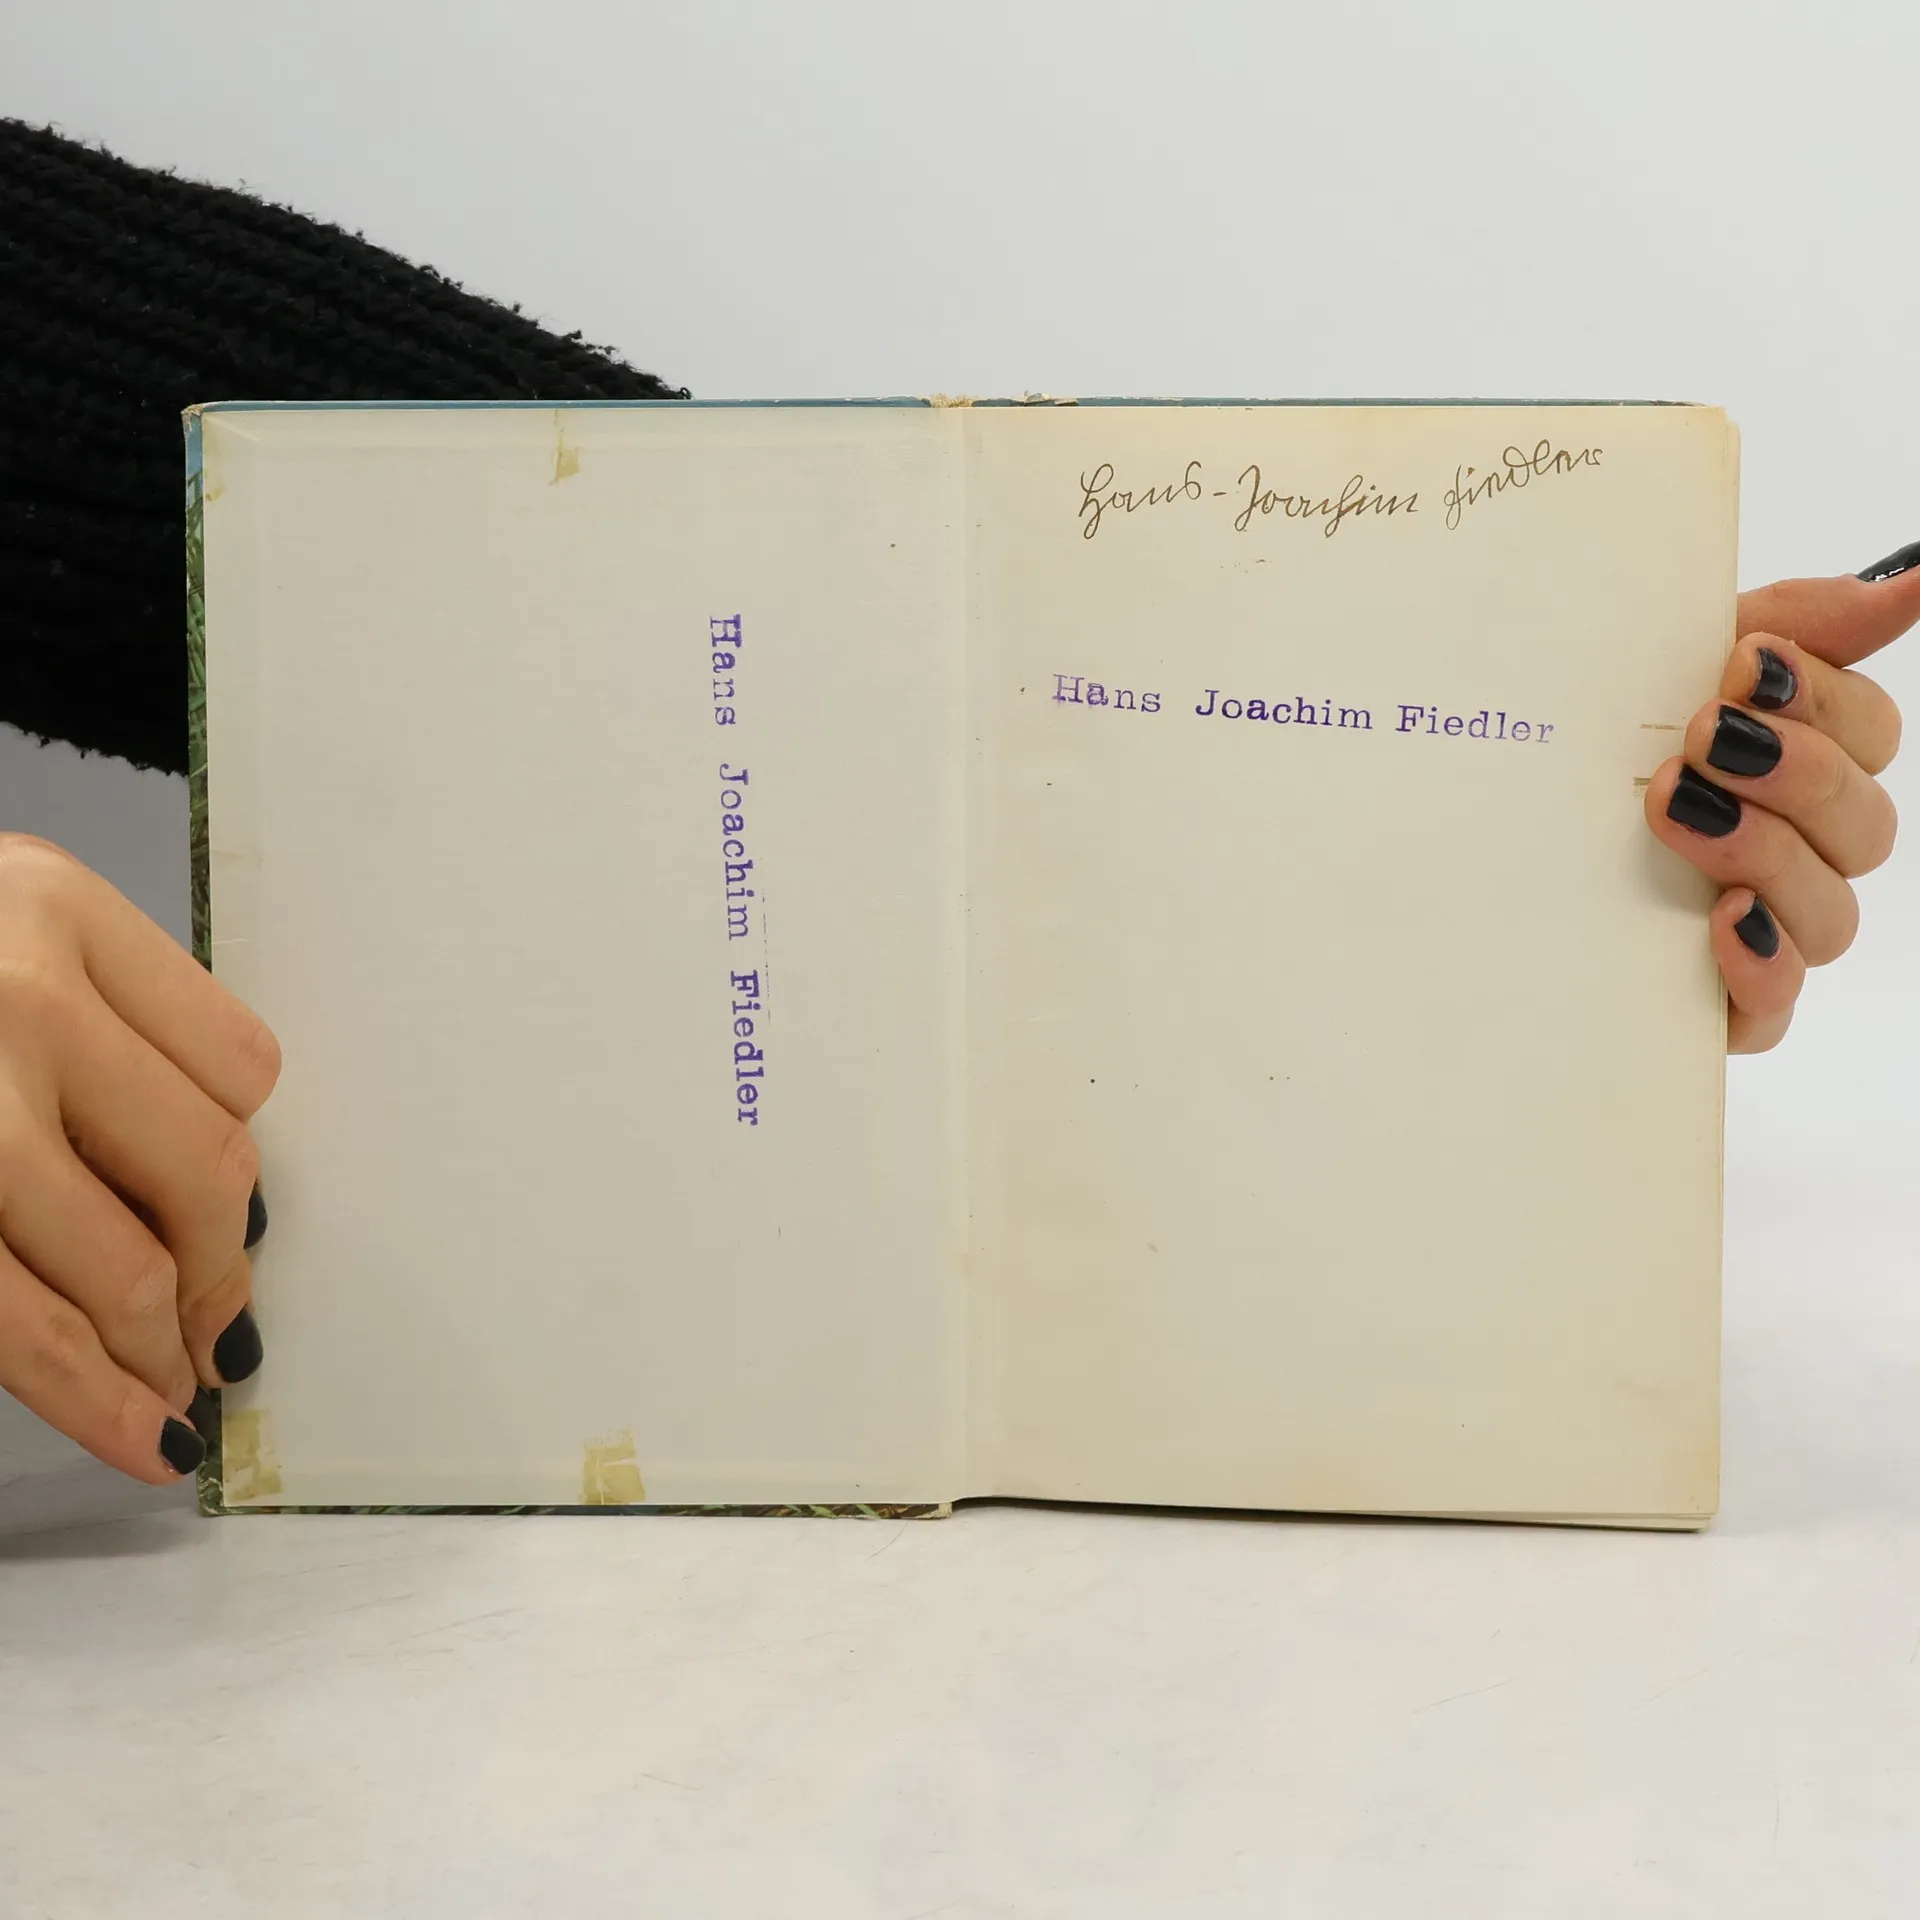 Hans Joachim Fiedler
Hans-Joachim Fiedler
Hans Joachim Fiedler